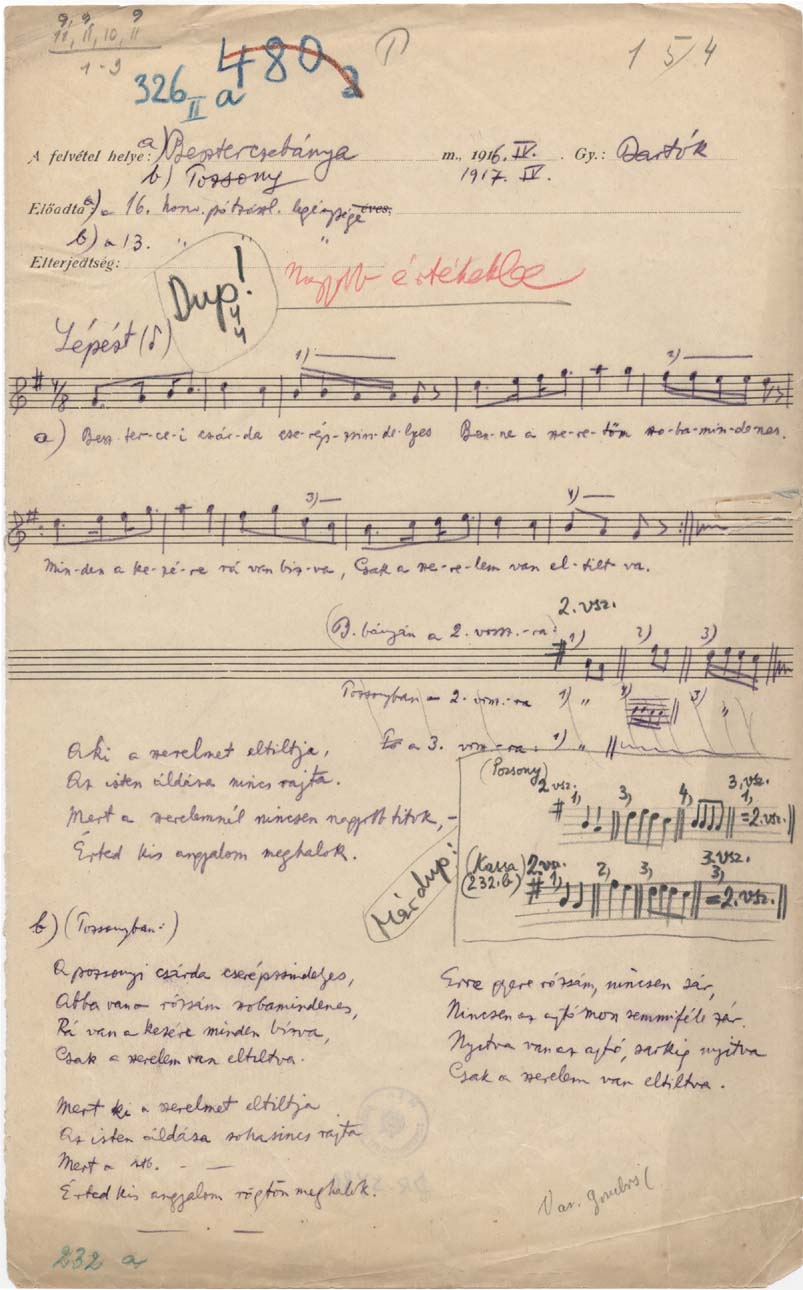 9, 9, 9
11, 11, 10, 11
1-9
326 II a
480 a
1 5/4
A felvétel helye: a) Besztercebánya m., 1916. IV. Gy.: Bartók
b) Pozsony 1917. IV.
Előadta: a) a 16. honv. pótzászl. legénysége éves,
b) a 13. " " "
Elterjedtség:
Dup!
44
nagyobb értékekbe
Lépést (♪)
7/8
1) 2)
a) Besz-ter-ce-i csár-da cse-rép-zsin-de-lyes Ben-ne a sze-re-tőm szo-ba-min-de-nes.
3) 4)
Min-den a ke-zé-re rá van bíz-va, Csak a sze-re-lem van el-tilt-va.
(B. bányán a 2. vssz.-ra: 2. vsz. 1) 2) 3)
Pozsonyban a 2. vssz.-ra 1) " 2) 3) "
És a 3. vssz.-ra: 1) "
Aki a szerelmet eltiltja,
Az isten áldása nincs rajta.
Mert a szerelemnél nincsen nagyobb titok,-
Érted kis angyalom meghalok.
(Pozsony) 2. vsz. 1, 3, 4, 3. vsz. 1, =2.vsz.
Már dup!
(Kassa) 2. vsz. 1, 2, 3, 3. vsz. 3, =2.vsz.
(232.b.)
b) (Pozsonyban:)
A pozsonyi csárda cserépzsindelyes,
Abba van a rózsám szobamindenes,
Rá van a kezére minden bízva,
Csak a szerelem van eltiltva.
Mert ki a szerelmet eltiltja
Az isten áldása sohasincs rajta
Mert a stb. - -
Érted kis angyalom rögtön meghalok.
Erre gyere rózsám, nincsen sár,
Nincsen az ajtómon semmiféle zár.
Nyitva van az ajtó, sarkig nyitva
Csak a szerelem van eltiltva.
232 a